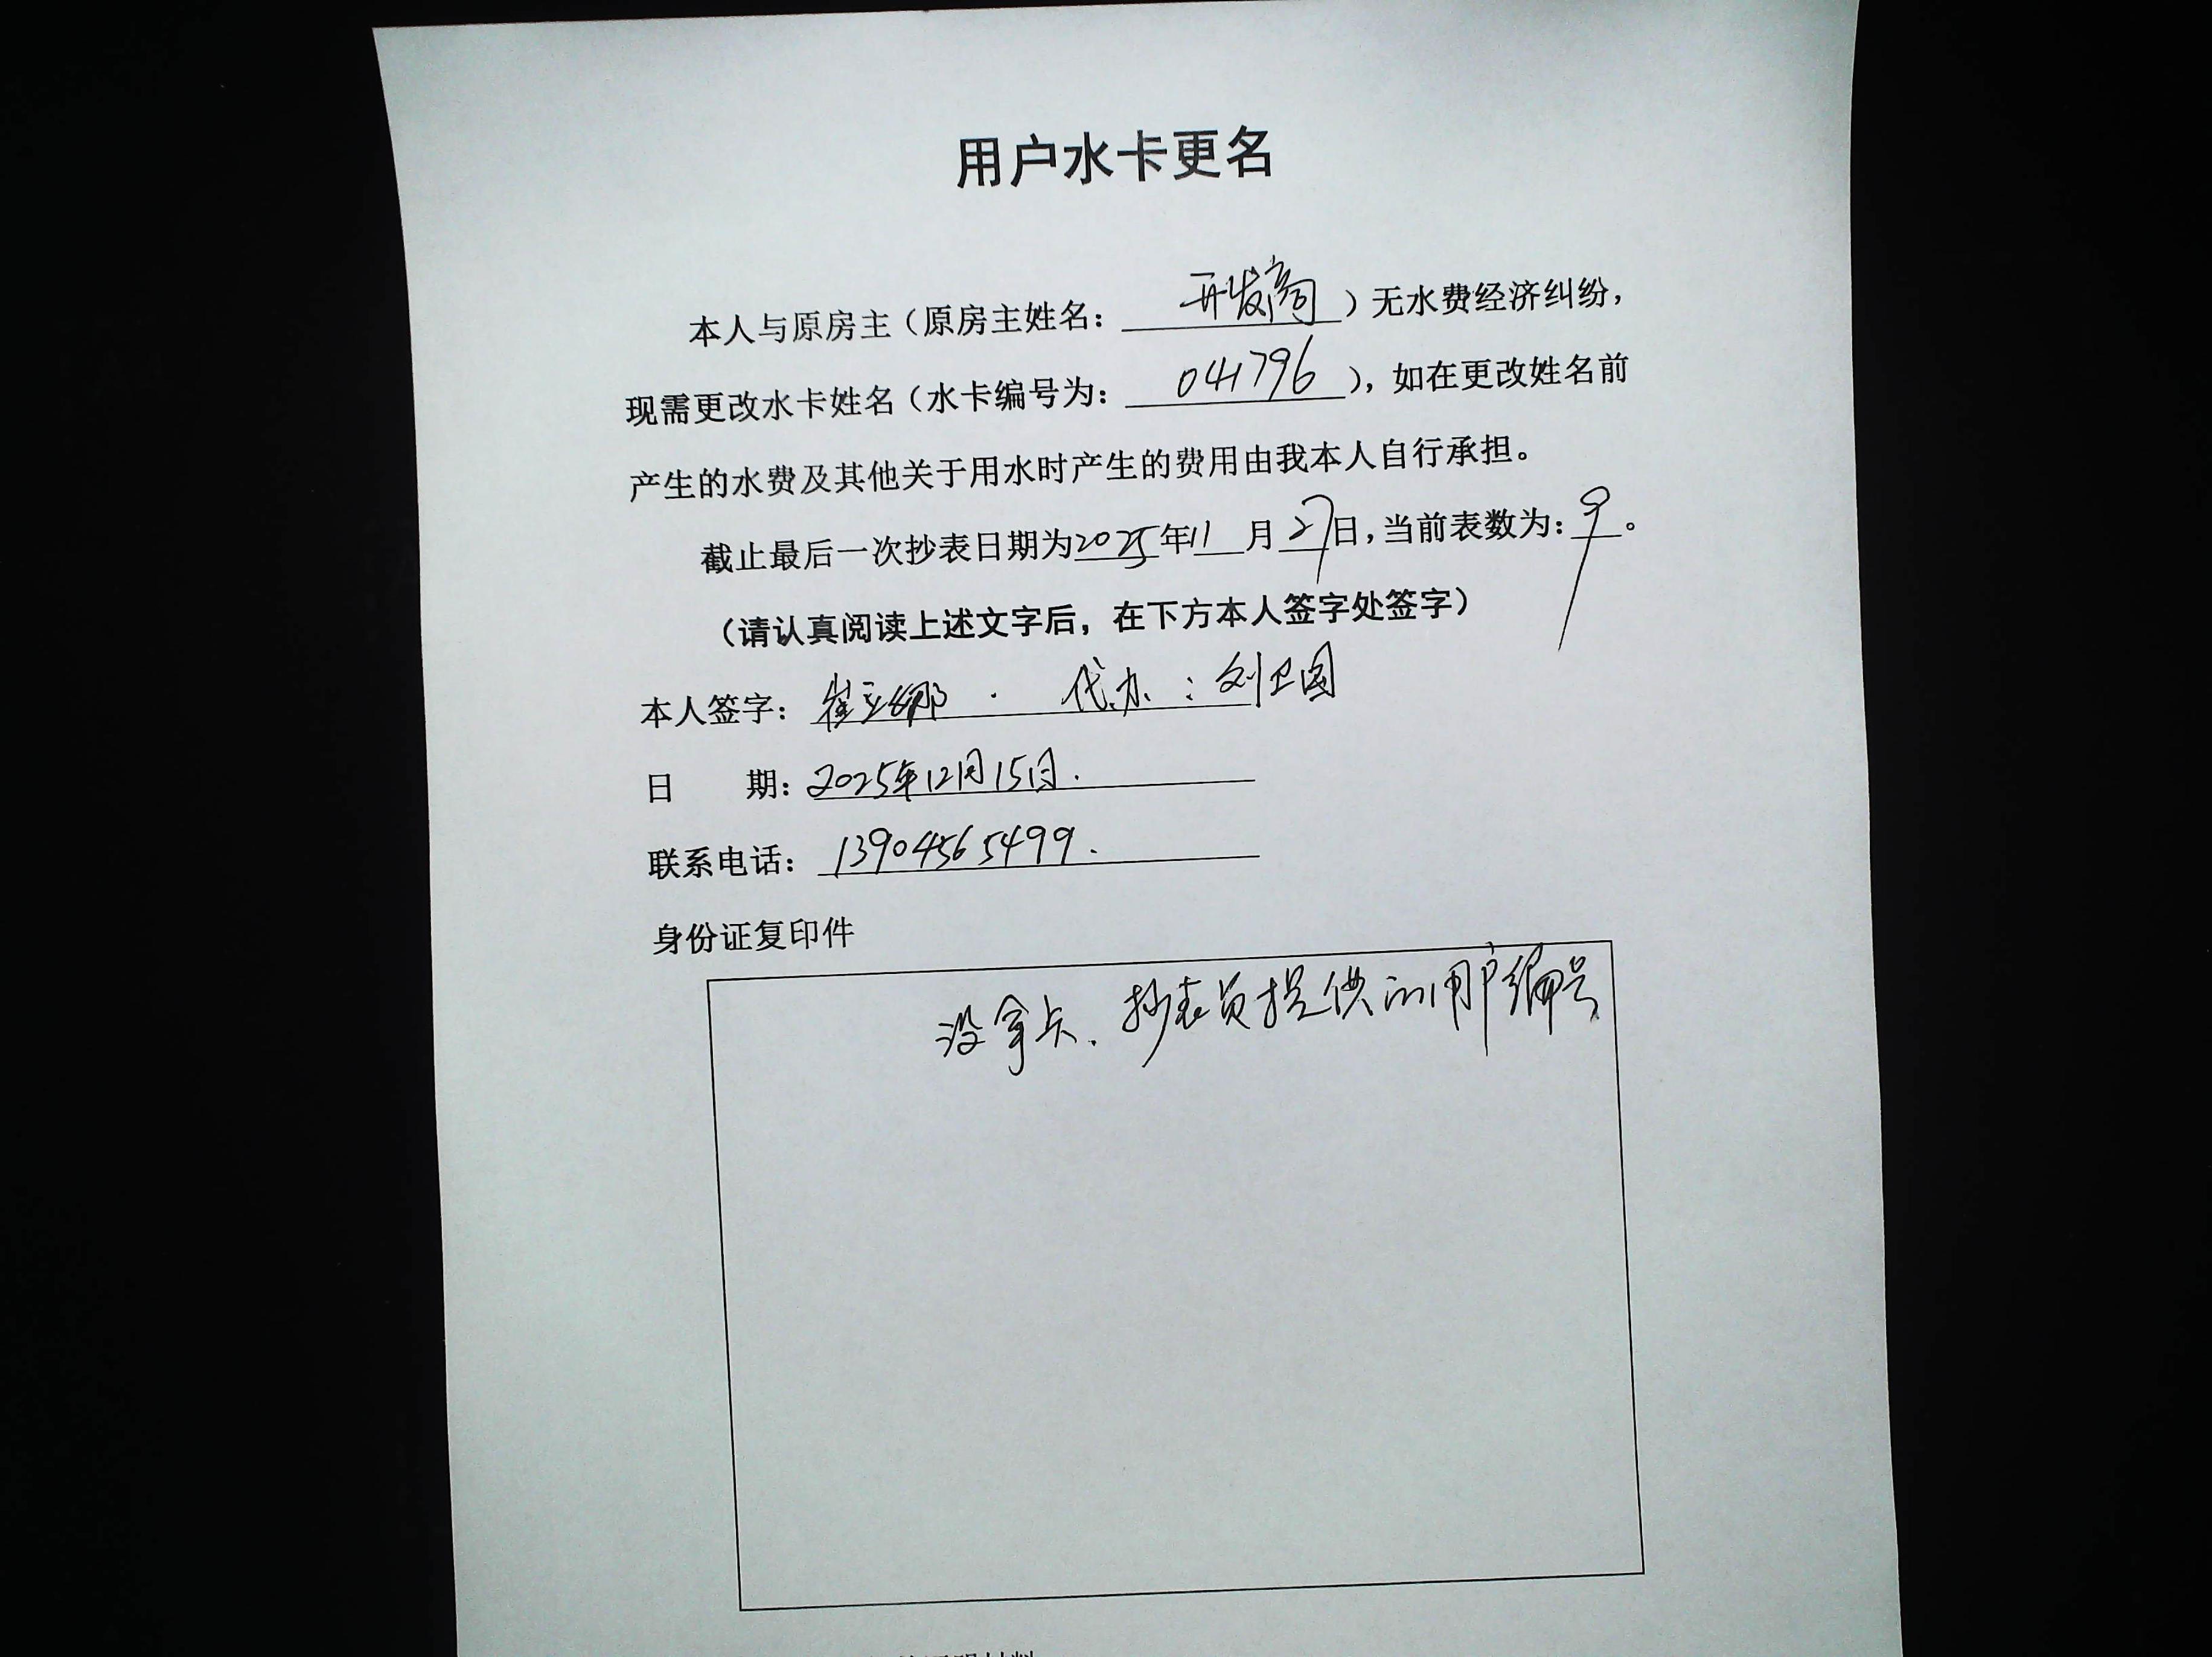 用户水卡更名
本人与原房主（原房主姓名：开发商）无水费经济纠纷，
现需更改水卡姓名（水卡编号为：041796），如在更改姓名前
产生的水费及其他关于用水时产生的费用由我本人自行承担。
截止最后一次抄表日期为2025年11月27日，当前表数为：9。
（请认真阅读上述文字后，在下方本人签字处签字）
本人签字：崔立娜． 代办：刘卫国
日 期：2025年12月15日.
联系电话：13904565499.
身份证复印件
没拿卡、抄表员提供的用户编号